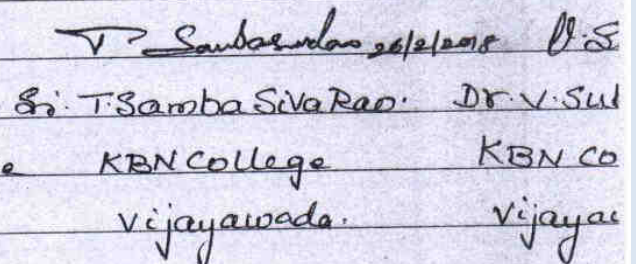 26/2/2018
Sri. T. Samba Siva Rao. Dr. V. Sul
e KBN College KBN Co
Vijayawada. Vijaya